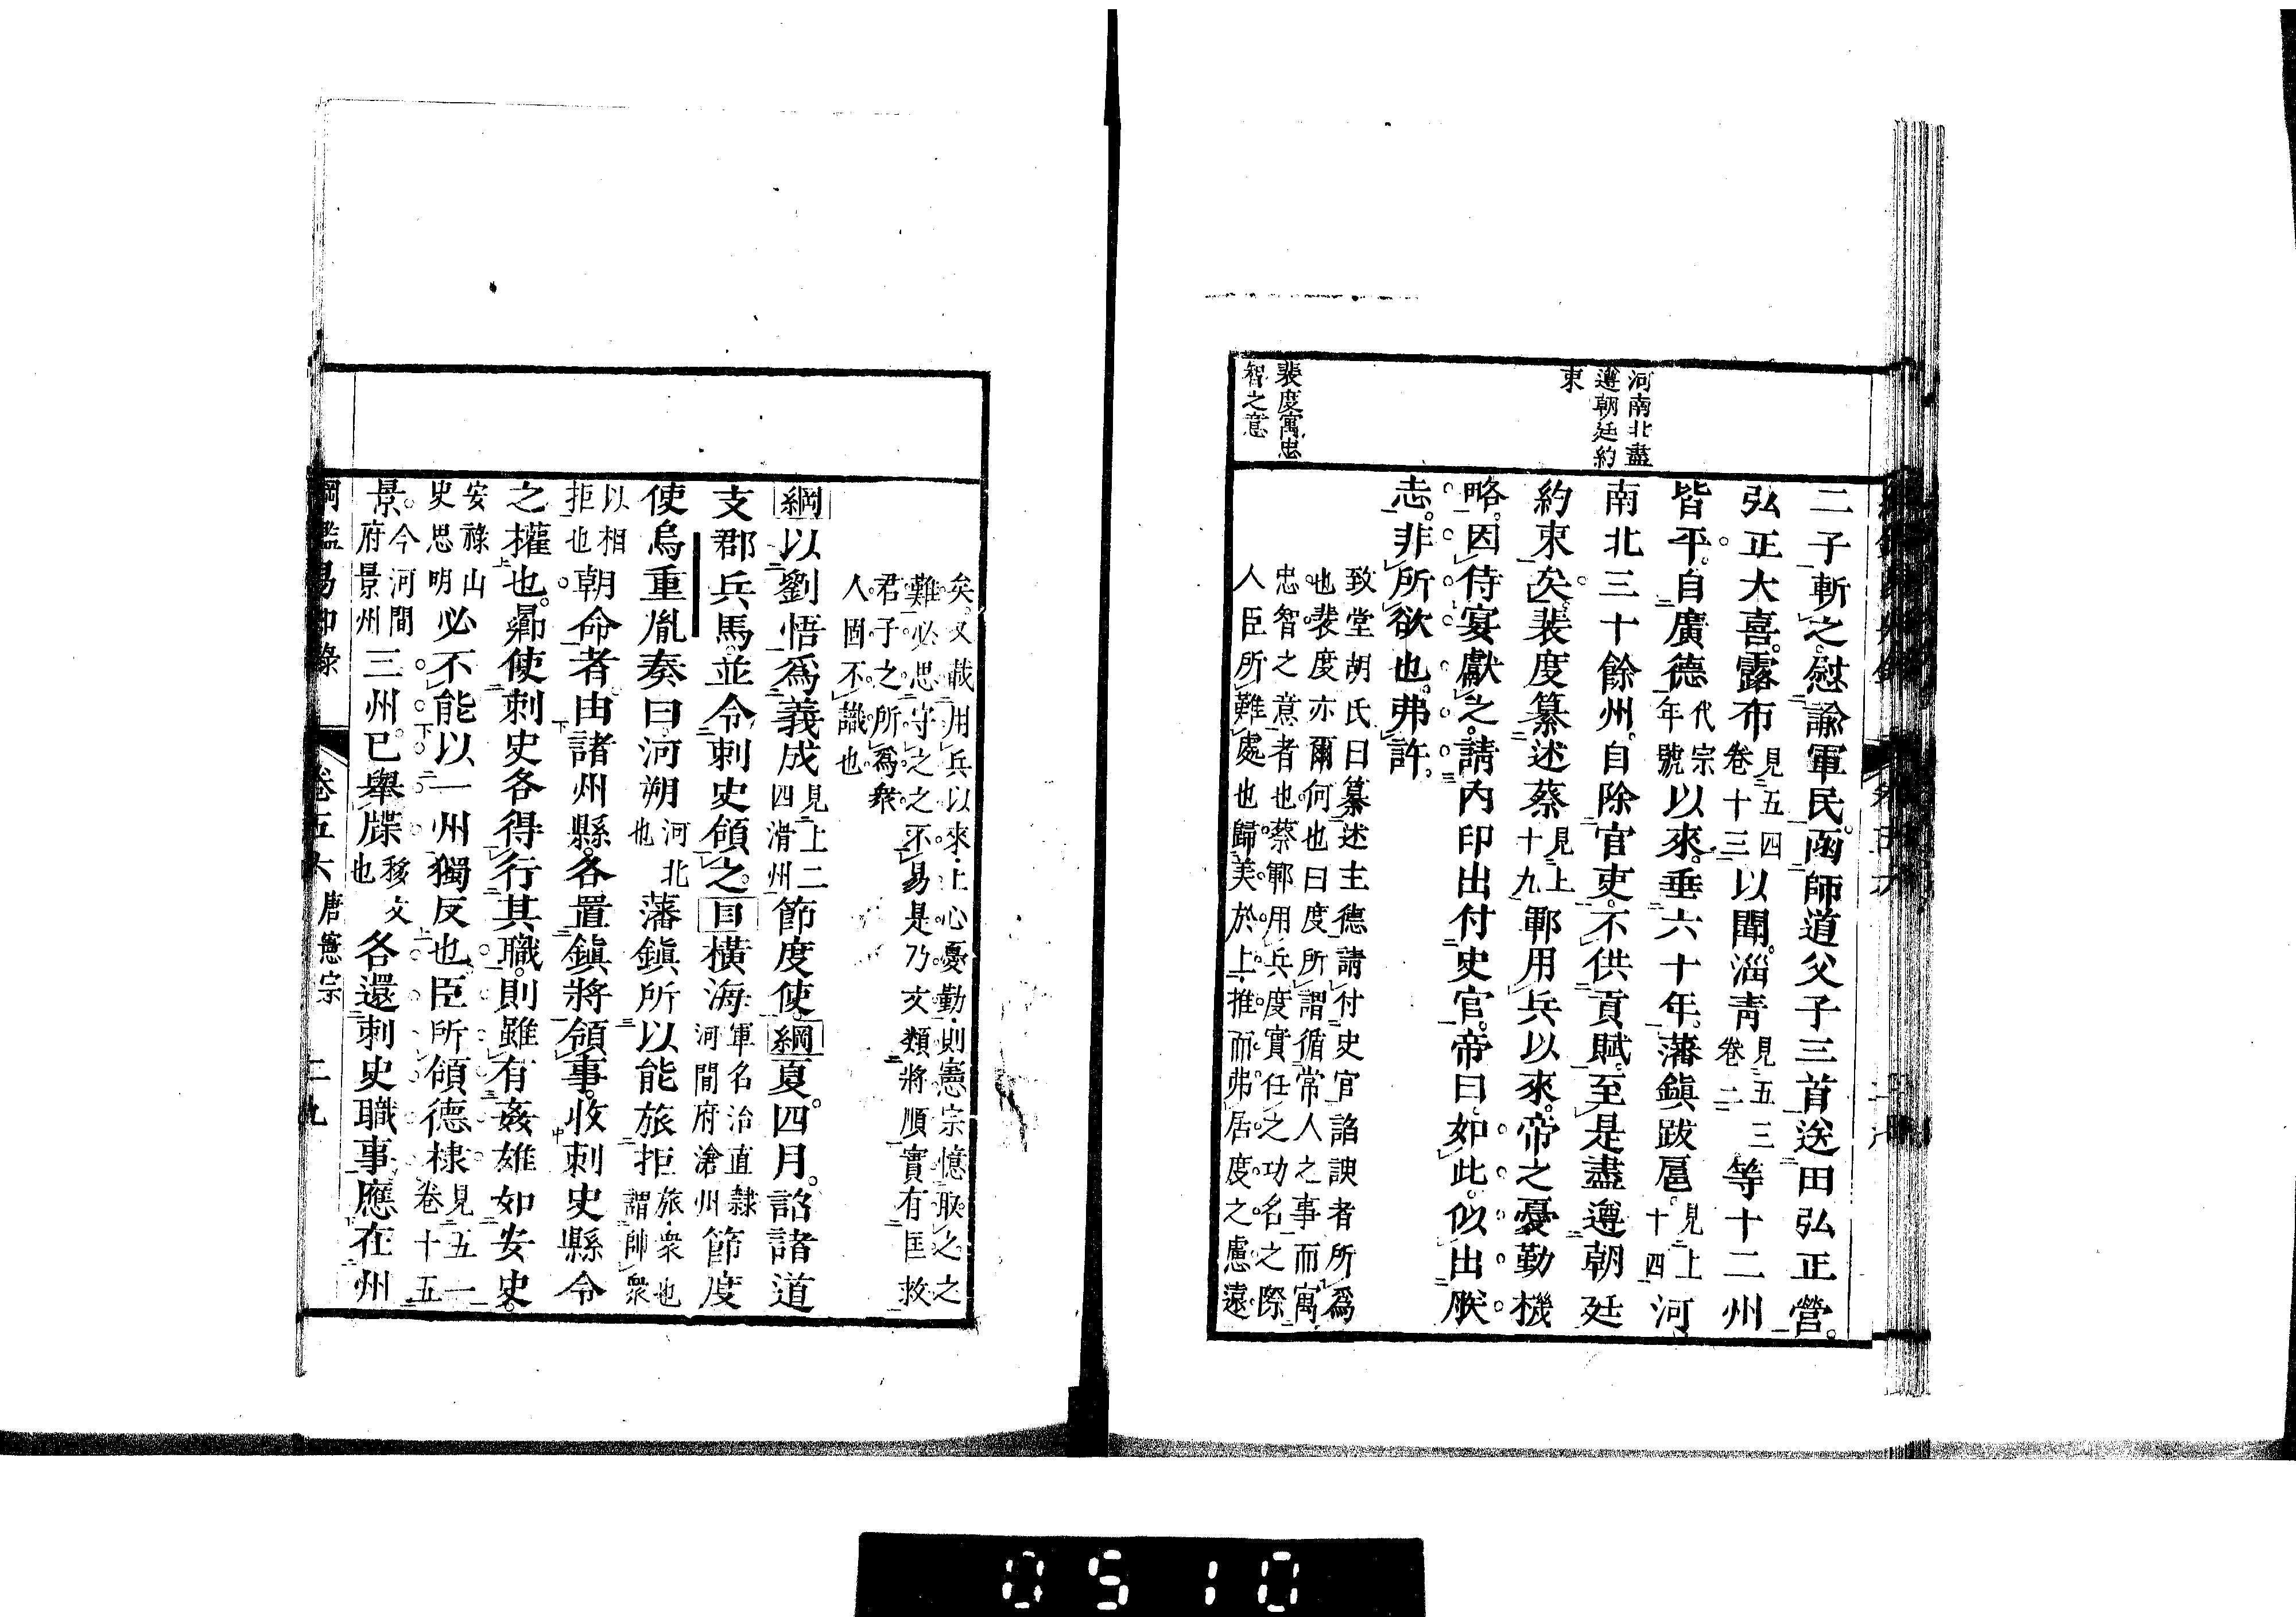 河南北盡
遵朝廷約
束
裴度寓忠
智之意
二子斬之慰諭軍民函師道父子三首送田弘正營
弘正大喜露布見五四卷十三以聞淄青見五三卷二等十二州
皆平自廣德代宗年號以來垂六十年藩鎭跋扈見上十四河
南北三十餘州自除官吏不供貢賦至是盡遵朝廷
約束矣裴度纂述蔡見上十九鄆用兵以來帝之憂勤機
略因侍宴獻之請內印出付史官帝曰如此似出朕
志非所欲也弗許
致堂胡氏曰纂述主德請付史官諂諛者所爲
也裴度亦爾何也曰度所謂循常人之事而寓
忠智之意者也蔡鄆用兵度實任之功名之際
人臣所難處也歸美於上推而弗居度之慮遠
矣又載用兵以來上心憂勤則憲宗憶耴之之
難必思守之之不易是乃文類將順實有匡救
君子之所爲衆
人固不識也
綱以劉悟爲義成見上二四滑州節度使綱夏四月詔諸道
支郡兵馬並令刺史領之目橫海軍名治直隷河間府滄州節度
使烏重胤奏曰河朔河北也藩鎭所以能旅拒旅衆也謂帥衆
以相拒也朝命者由諸州縣各置鎭將領事收刺史縣令
之權也曏使刺史各得行其職則雖有姦雄如安史
安祿山史思明必不能以一州獨反也臣所領德棣見五一卷十五
景今河間府景州三州已舉牒移文也各還刺史職事應在州
綱鑑易知錄
卷五六 唐憲宗
二九
0510